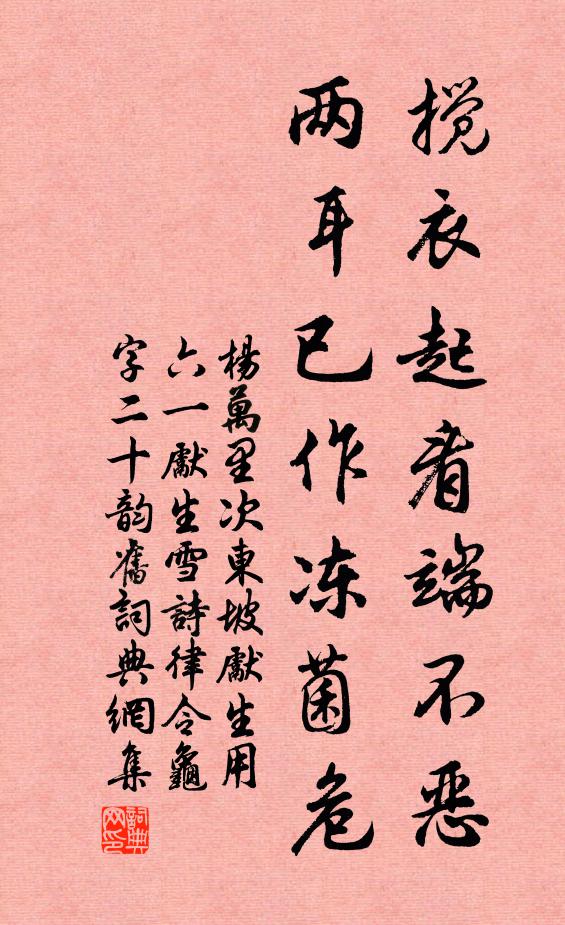 揽衣起看端不恶
两耳已作冻菌危
楊萬里次東坡獻生用
六一獻生雪詩律令龜
字二十韵舊詞典網集
詞典网印